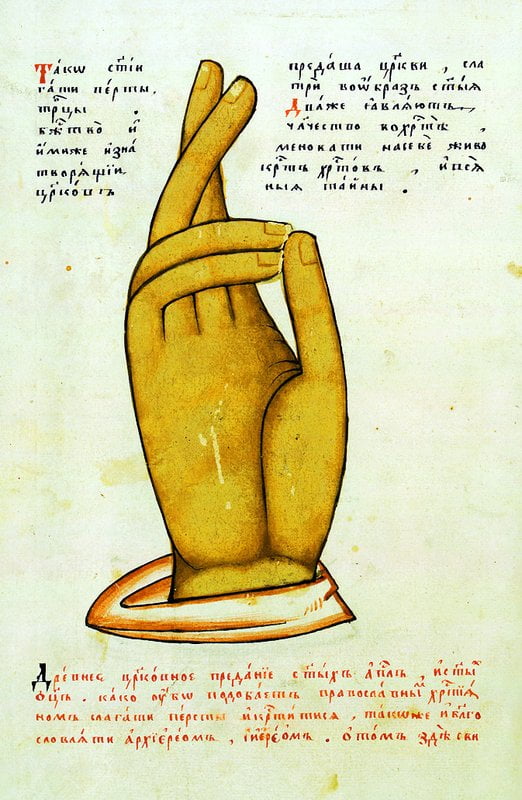 Та́кѡ ст҃і́и
га́ти пе́рсты,
тр҃цы .
бж҃тво̀ и҆
и҆́миже и҆зна
творѧ́щїи
цр҃ковь
преда́ша цр҃кви , сла
трѝ во ѡ҆́бразъ ст҃ы́ѧ
Два̀ же ꙗ҆влѧ́ютъ
члч҃ество во хрⷭ҇тѣ̀ ,
менова́ти на себѐ живо
крⷭ҇тъ хрⷭ҇то́въ , и҆ всѧ̑
ныѧ та́йны .
Дре́внее цр҃ко́вное преда́нїе ст҃ы́хъ а҆пⷭ҇лъ , и҆ ст҃ы́
ѻ҆ц҃ъ . ка́ко ᲂу҆́бѡ подоба́етъ правосла́внымъ хрⷭ҇тїѧ́
номъ слага́ти пе́рсты и҆ крⷭ҇ти́тисѧ , та́коже и҆ бл҃го
словлѧ́ти а҆рхїере́омъ , і҆ере́омъ . ѻ҆ то́мъ здѣ̀ сви